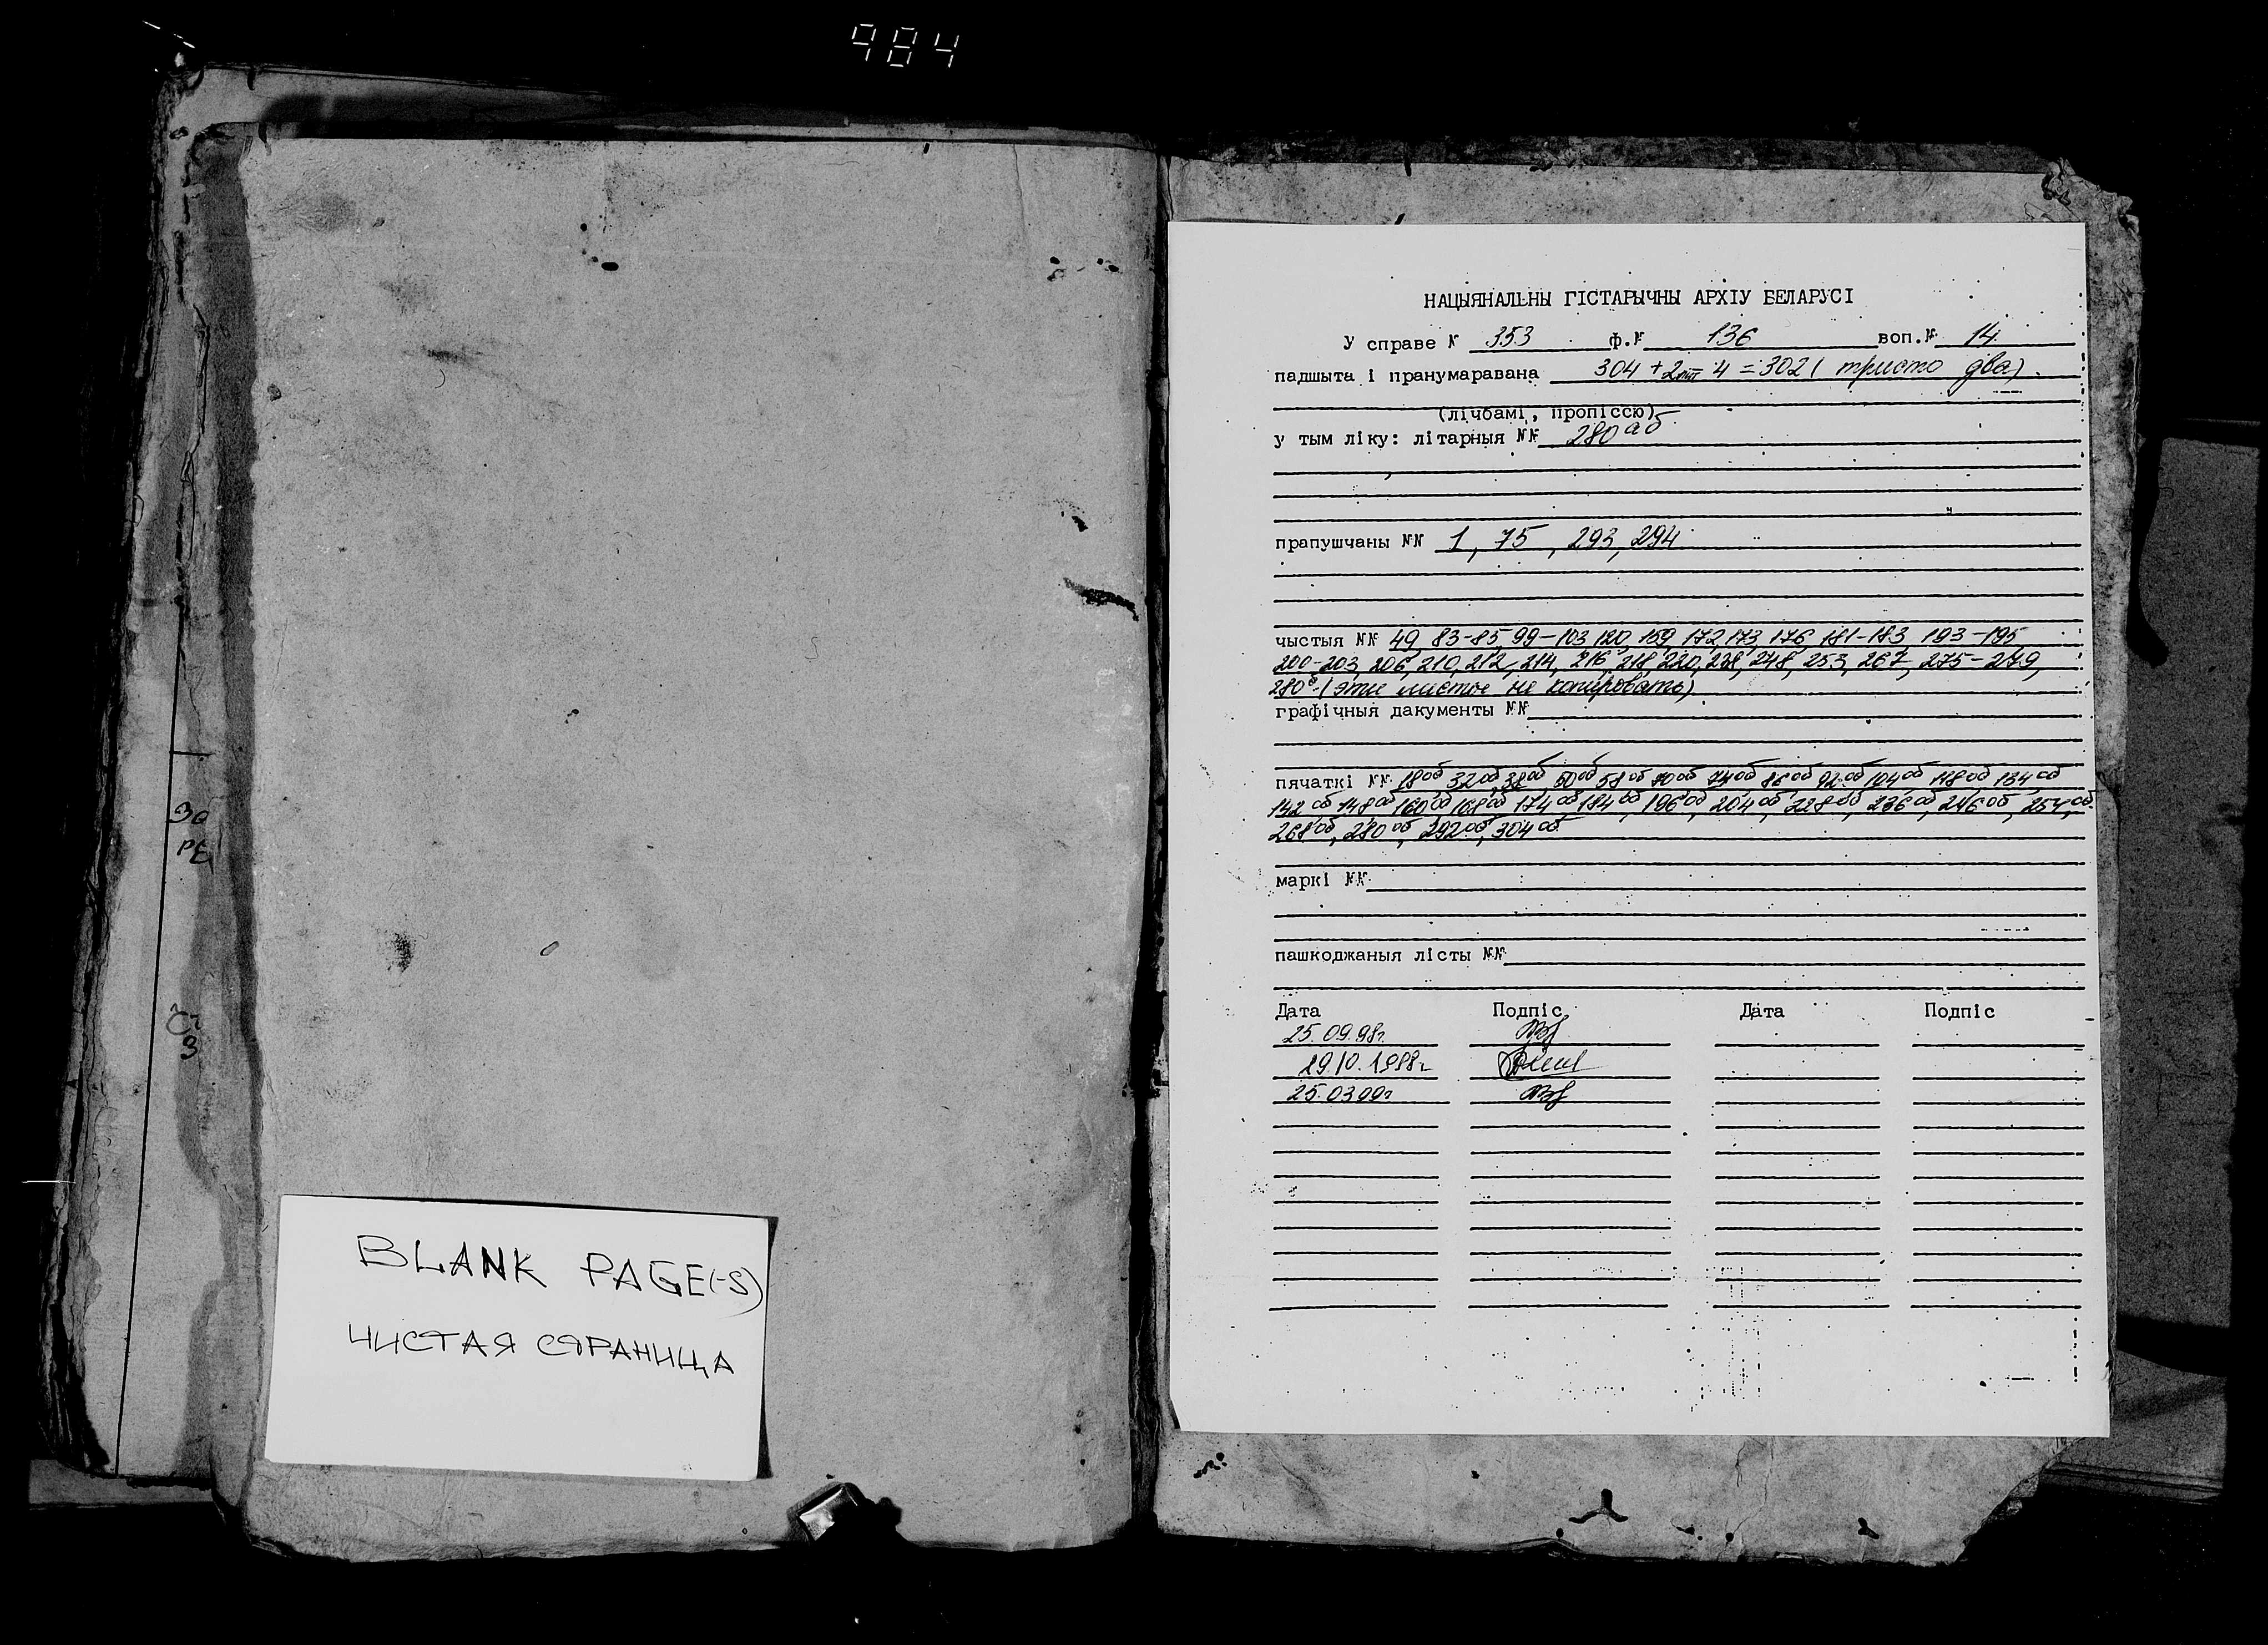 984
За
РЕ
BLANK PAGE(-S)
ЧИСТАЯ СТРАНИЦА
НАЦЫЯНАЛЬНЫ ГІСТАРЫЧНЫ АРХІУ БЕЛАРУСІ
У справе № 353 ф.№ 136 воп.№ 14
падшыта і пранумаравана 304 + 2лит - 4 = 302 ( тристо два)
(лічбамі, пропіссю)
у тым ліку: літарныя №№ 280 аб
прапушчаны №№ 1, 75, 293, 294
чыстыя №№ 49, 83-85, 99-103, 120, 159, 172, 173, 176, 181-183, 193-195
200-203, 206, 210, 212, 214, 216, 218, 220, 238, 248, 253, 267, 275-279,
280б (эти листы не копировать)
графічныя дакументы №№
пячаткі №№ 18об, 32об, 38об, 50об, 58об, 70об, 74об, 86об, 92об, 104об, 118об, 134об
142об, 148об, 160об, 168об, 174об, 184об, 196об, 204об, 228об, 236об, 246об, 254об
268об, 280об, 292об, 304об
маркі №№
пашкоджаныя лісты №№
Дата Подпіс Дата Подпіс
25.09.98г.
29.10.1998г
25.03.99г